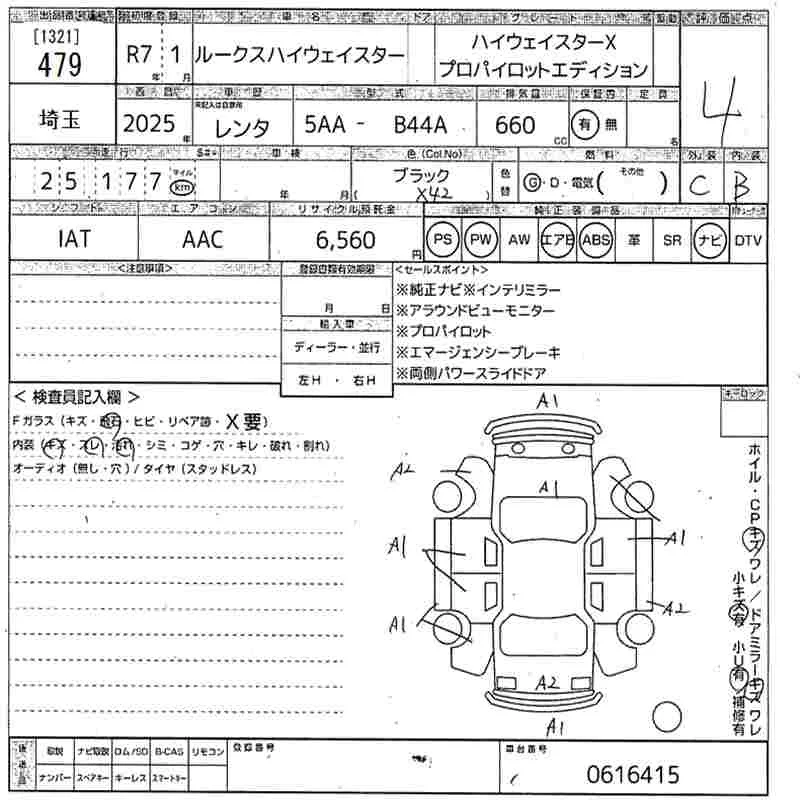 出品車運連番 初度登録 車名 ドア グレード 駆動 評価点
[1321]
479
R7 1
年 月
ルークスハイウェイスター
ハイウェイスターX
プロパイロットエディション
4
車歴 型式 排気量 保証書 定員
埼玉
2025年
※記入は自家用
レンタ
5AA - B44A
660 cc
有 無
名
走行 車検 色(Col No) 燃料 外装 内装
25177
マイル
km
年 月
ブラック
( X42 )
色替
G・D・電気( その他 )
C B
シフト エアコン リサイクル預託金 純正装備品
IAT AAC 6,560円
PS PW AW エアB ABS 革 SR ナビ DTV
<注意事項> 登録書類有効期限 <セールスポイント>
月 日
輸入車
ディーラー・並行
左H ・ 右H
※純正ナビ※インテリミラー
※アラウンドビューモニター
※プロパイロット
※エマージェンシーブレーキ
※両側パワースライドドア
キーロック
< 検査員記入欄 >
Fガラス(キズ・飛石・ヒビ・リペア跡・X要)
内装(キズ・スレ・汚れ・シミ・コゲ・穴・キレ・破れ・割れ)
オーディオ(無し・穴)/タイヤ(スタッドレス)
A1
A2
A1
A1
A1
A1
A2
A2
A1
ホイル・CPキズ/ワレ/ドアミラーキズ/ワレ
小キズ有 小U有/補修有
後送品
取説 ナビ取説 ロム/SD B-CAS リモコン
ナンバー スペアキー キーレス スマートキー
登録番号
車台番号
0616415